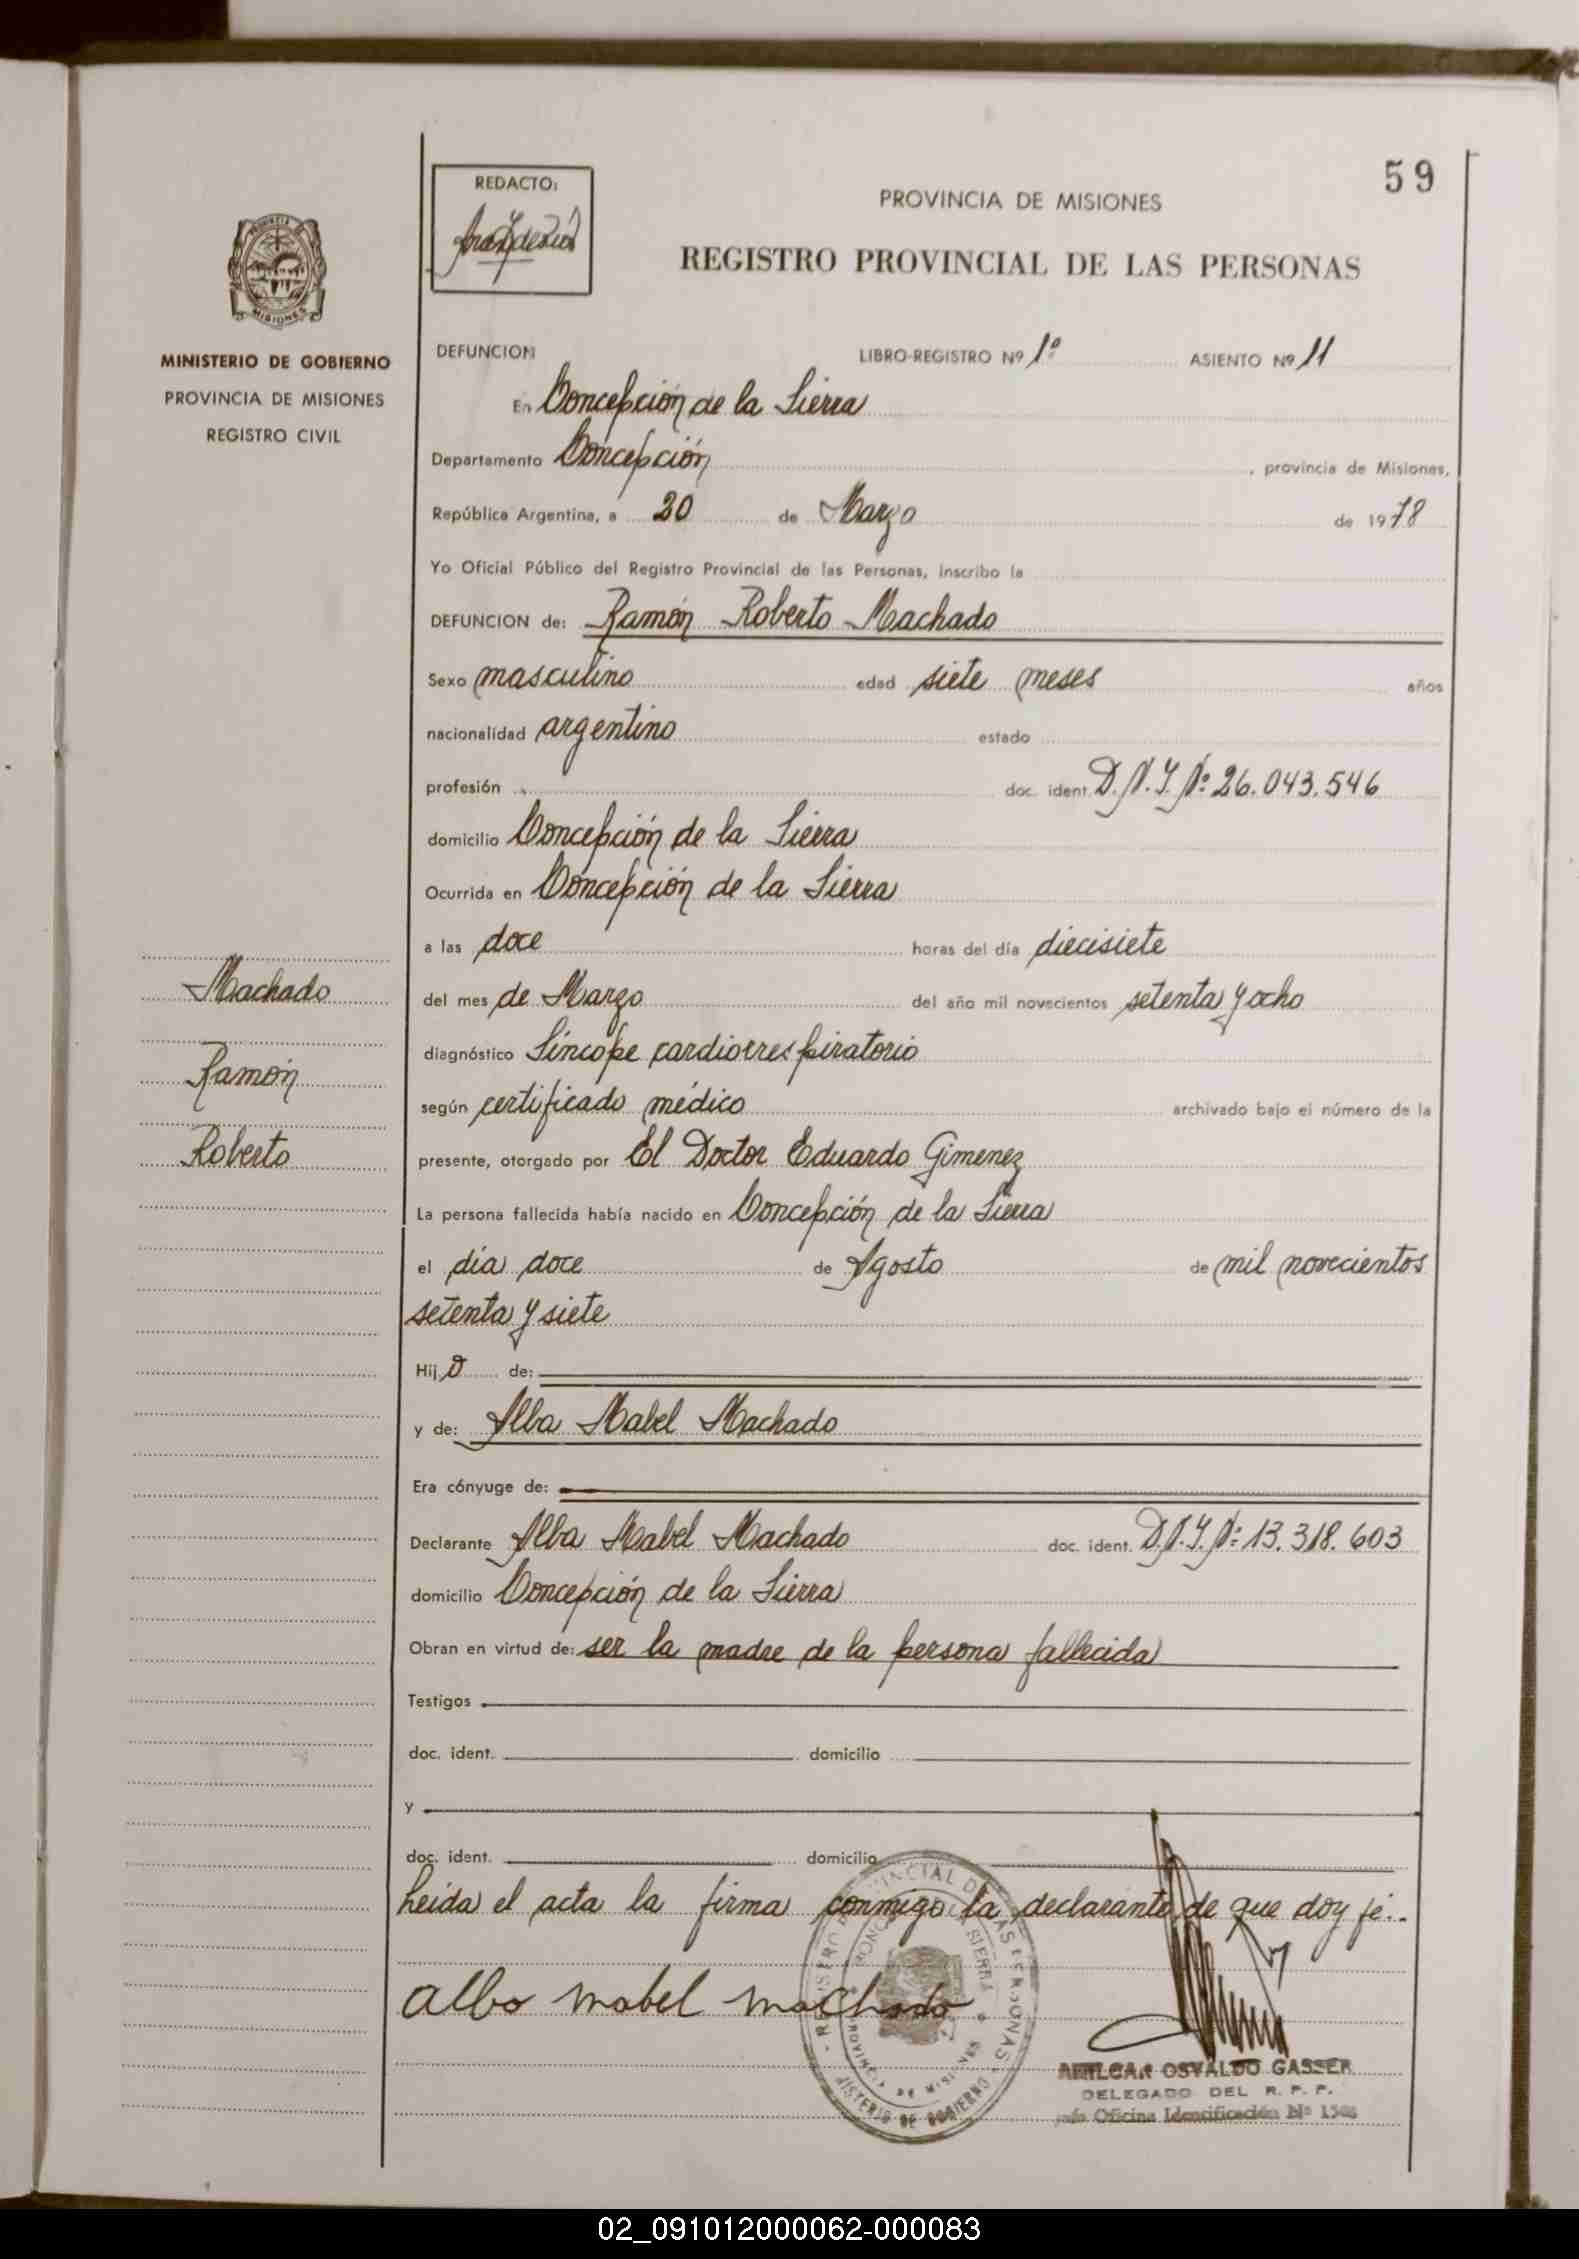 59
REDACTO:
PROVINCIA DE MISIONES
REGISTRO PROVINCIAL DE LAS PERSONAS
MINISTERIO DE GOBIERNO
PROVINCIA DE MISIONES
REGISTRO CIVIL
DEFUNCION LIBRO-REGISTRO Nº 1º ASIENTO Nº 11
En Concepción de la Sierra
Departamento Concepción, provincia de Misiones,
República Argentina, a 20 de Marzo de 1978
Yo Oficial Público del Registro Provincial de las Personas, inscribo la
DEFUNCION de: Ramón Roberto Machado
Sexo masculino edad siete meses años
nacionalidad argentino estado
profesión doc. ident. D.N.I. Nº 26.043.546
domicilio Concepción de la Sierra
Ocurrida en Concepción de la Sierra
a las doce horas del día diecisiete
del mes de Marzo del año mil novecientos setenta y ocho
diagnóstico Síncope cardiorrespiratorio
según certificado médico archivado bajo el número de la
presente, otorgado por El Doctor Eduardo Gimenez
La persona fallecida había nacido en Concepción de la Sierra
el día doce de Agosto de mil novecientos
setenta y siete
Hijo de:
y de: Alba Mabel Machado
Era cónyuge de:
Declarante Alba Mabel Machado doc. ident. D.N.I. Nº 13.318.603
domicilio Concepción de la Sierra
Obran en virtud de: ser la madre de la persona fallecida
Testigos
doc. ident. domicilio
y
doc. ident. domicilio
Leída el acta la firma conmigo la declarante de que doy fé..
alba mabel machado
AMILCAR OSVALDO GASSER
DELEGADO DEL R. P. P.
Oficina Identificación Nº
Machado
Ramón
Roberto
PROVINCIA DE MISIONES
02_091012000062-000083